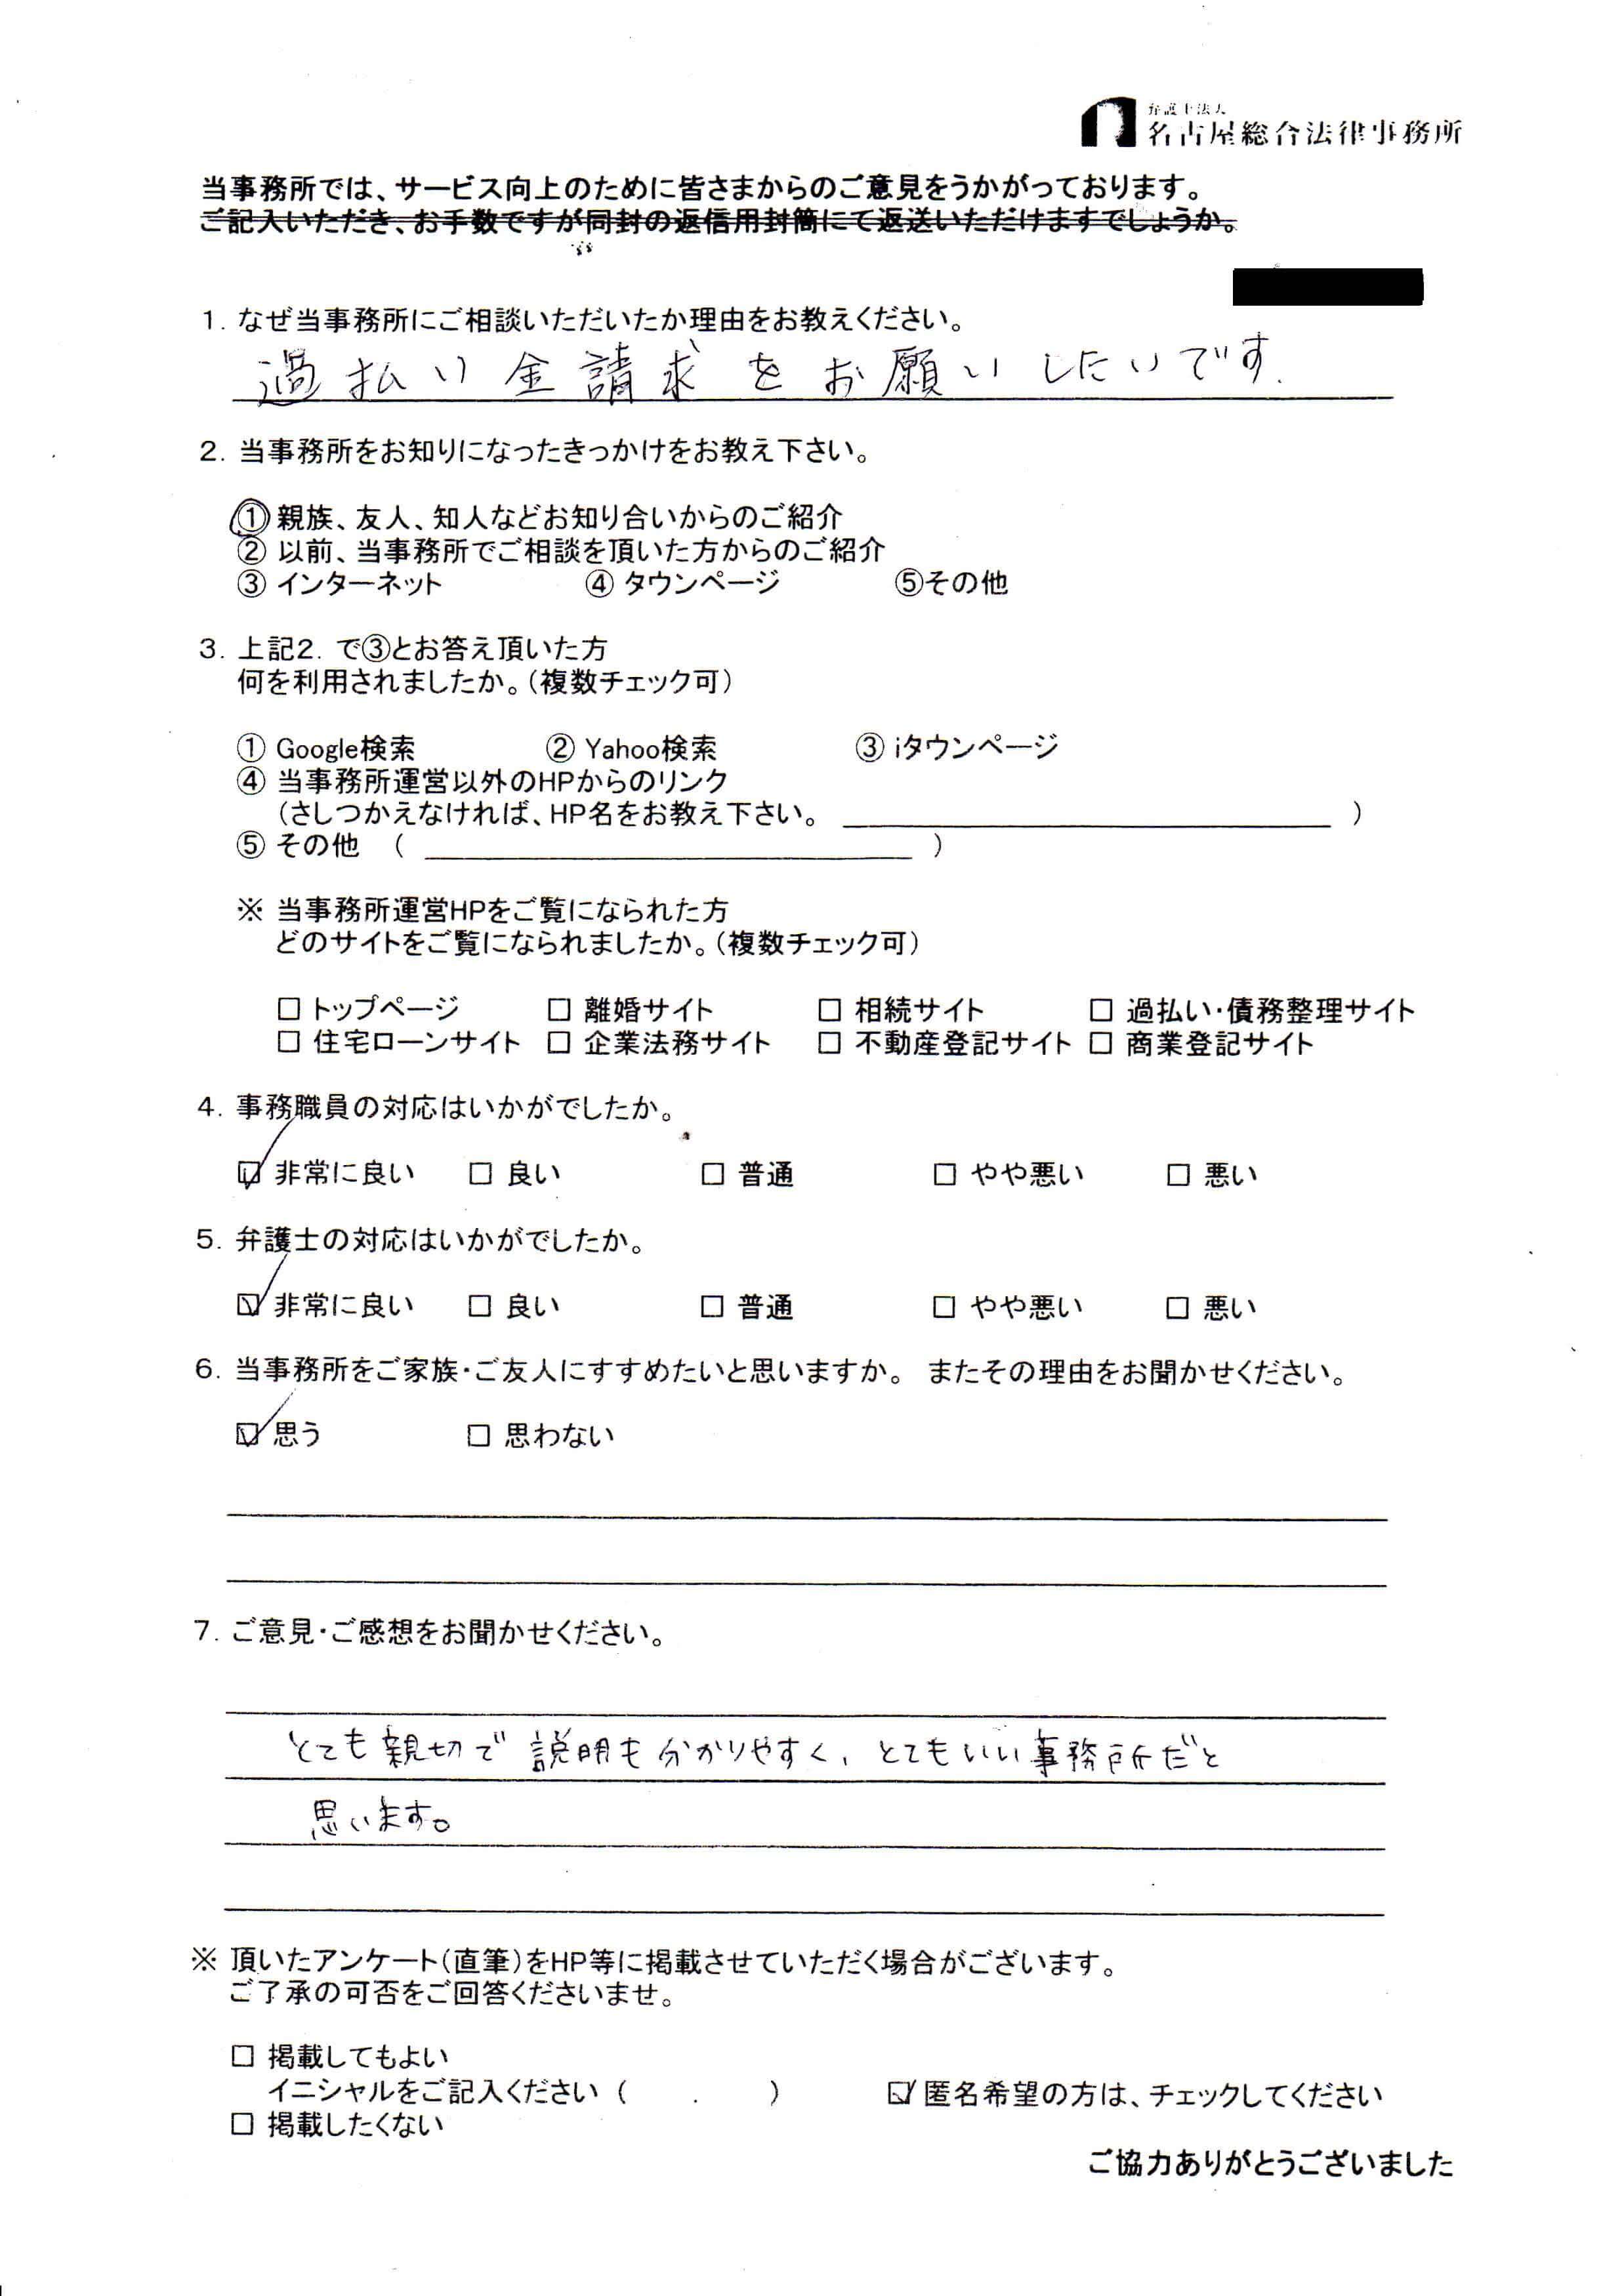 弁護士法人
名古屋総合法律事務所
当事務所では、サービス向上のために皆さまからのご意見をうかがっております。
ご記入いただき、お手数ですが同封の返信用封筒にて返送いただけますでしょうか。
1. なぜ当事務所にご相談いただいたか理由をお教えください。
過払い金請求をお願いしたいです.
2. 当事務所をお知りになったきっかけをお教え下さい。
① 親族、友人、知人などお知り合いからのご紹介
② 以前、当事務所でご相談を頂いた方からのご紹介
③ インターネット ④ タウンページ ⑤その他
3. 上記2. で③とお答え頂いた方
何を利用されましたか。(複数チェック可)
① Google検索 ② Yahoo検索 ③ iタウンページ
④ 当事務所運営以外のHPからのリンク
(さしつかえなければ、HP名をお教え下さい。 )
⑤ その他 ( )
※ 当事務所運営HPをご覧になられた方
どのサイトをご覧になられましたか。(複数チェック可)
□ トップページ □ 離婚サイト □ 相続サイト □ 過払い・債務整理サイト
□ 住宅ローンサイト □ 企業法務サイト □ 不動産登記サイト □ 商業登記サイト
4. 事務職員の対応はいかがでしたか。
☑ 非常に良い □ 良い □ 普通 □ やや悪い □ 悪い
5. 弁護士の対応はいかがでしたか。
☑ 非常に良い □ 良い □ 普通 □ やや悪い □ 悪い
6. 当事務所をご家族・ご友人にすすめたいと思いますか。 またその理由をお聞かせください。
☑ 思う □ 思わない
7. ご意見・ご感想をお聞かせください。
とても親切で説明も分かりやすく、とてもいい事務所だと
思います。
※ 頂いたアンケート(直筆)をHP等に掲載させていただく場合がございます。
ご了承の可否をご回答くださいませ。
□ 掲載してもよい
イニシャルをご記入ください ( . ) ☑ 匿名希望の方は、チェックしてください
□ 掲載したくない
ご協力ありがとうございました